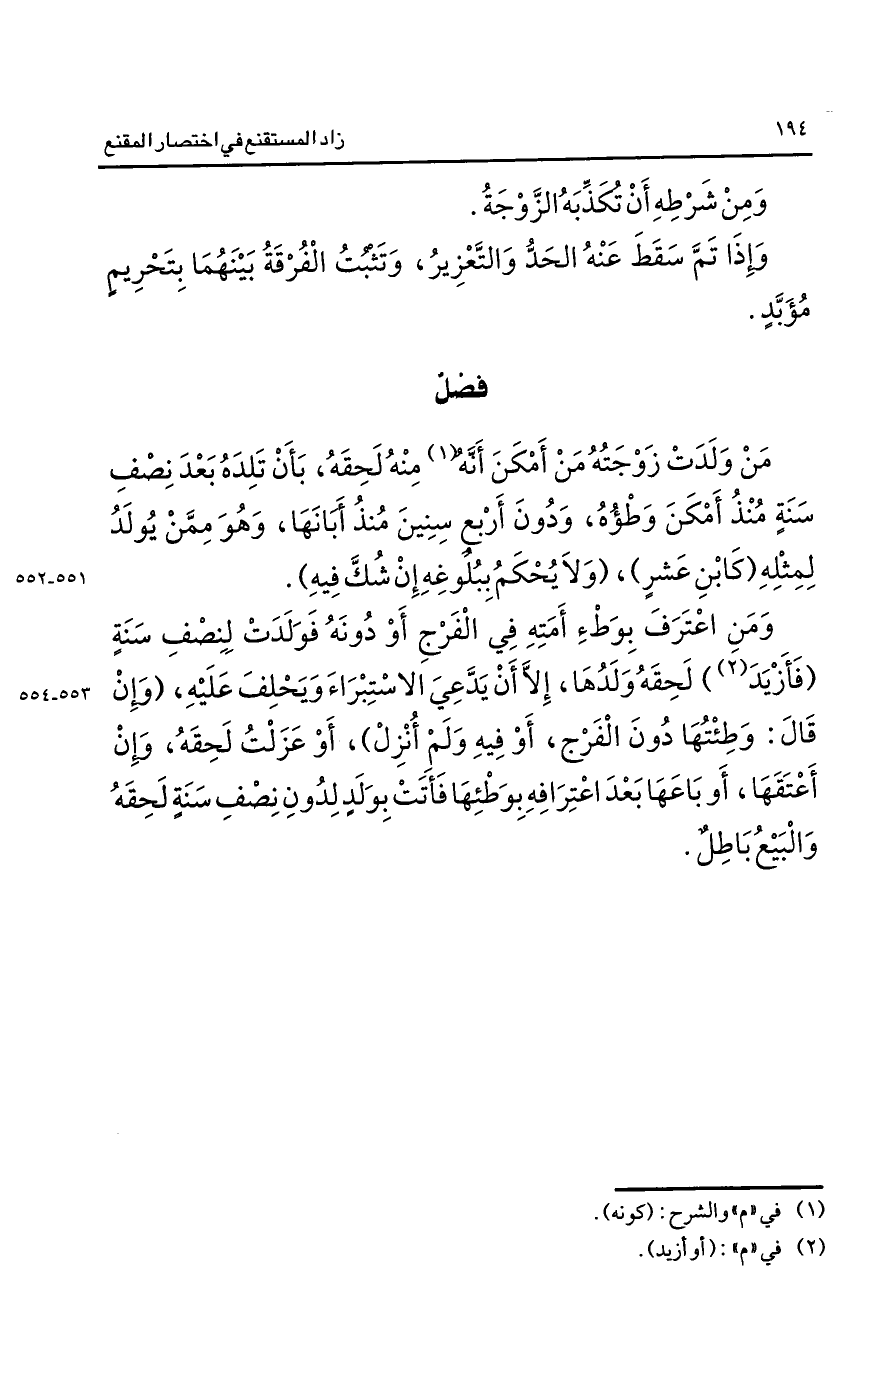 ١٩٤
زاد المستقنع في اختصار المقنع
وَمِنْ شَرْطِهِ أَنْ تُكَذِّبَهُ الزَّوْجَةُ .
وَإِذَا تَمَّ سَقَطَ عَنْهُ الحَدُّ وَالتَّعْزِيرُ ، وَتَثْبُتُ الْفُرْقَةُ بَيْنَهُمَا بِتَحْرِيمٍ
مُؤَبَّدٍ .
فصْلٌ
مَنْ وَلَدَتْ زَوْجَتُهُ مَنْ أَمْكَنَ أَنَّهُ(١) مِنْهُ لَحِقَهُ، بَأَنْ تَلِدَهُ بَعْدَ نِصْفِ
سَنَةٍ مُنْذُ أَمْكَنَ وَطْؤُهُ، وَدُونَ أَرْبَعِ سِنِينَ مُنذُ أَبَانَهَا، وَهُوَ مِمَّنْ يُولَدُ
لِمِثْلِهِ (كَابْنِ عَشرٍ)، (وَلاَ يُحْكَمُ بِبُلُوغِهِ إِنْ شُكَّ فِيهِ) .
٥٥١-٥٥٢
وَمَنِ اعْتَرَفَ بِوَطْءِ أَمَتِهِ فِي الْفَرْجِ أَوْ دُونَهُ فَوَلَدَتْ لِنِصْفِ سَنَةٍ
(فَأَزْيَدَ(٢)) لَحِقَهُ وَلَدُهَا، إِلاَّ أَنْ يَدَّعِيَ الاسْتِبْرَاءَ وَيَحْلِفَ عَلَيْهِ، (وَإِنْ
٥٥٣-٥٥٤
قَالَ : وَطِئْتُهَا دُونَ الْفَرْجِ، أَوْ فِيهِ وَلَمْ أُنْزِلْ)، أَوْ عَزَلْتُ لَحِقَهُ، وَإِنْ
أَعْتَقَهَا، أَو بَاعَهَا بَعْدَ اعْتِرَافِهِ بِوَطْئِهَا فَأَتَتْ بِوَلَدٍ لِدُونِ نِصْفِ سَنَةٍ لَحِقَهُ
وَالْبَيْعُ بَاطِلٌ .
(١) في «م» والشرح : (كونه) .
(٢) في «م» : (أو أزيد) .